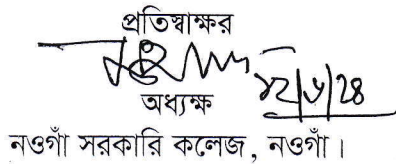 প্রতিস্বাক্ষর
অধ্যক্ষ
নওগাঁ সরকারি কলেজ, নওগাঁ।